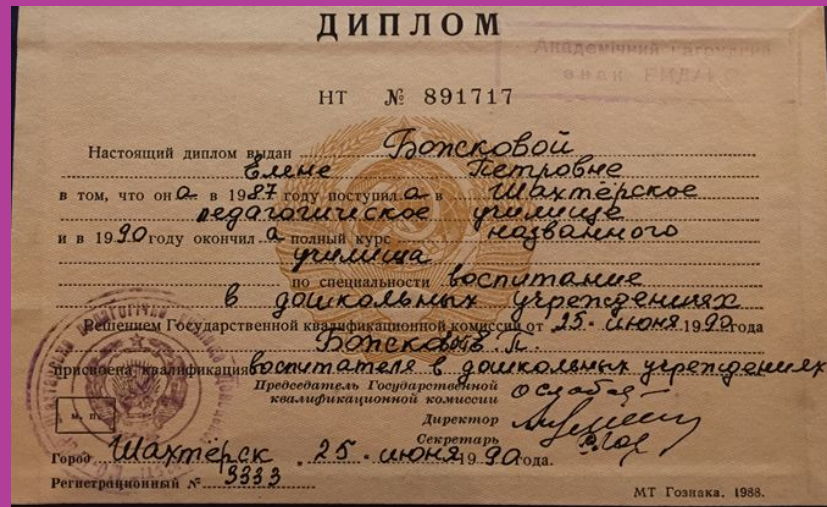 ДИПЛОМ
Академічний нагрудний
знак ВИДАНО
НТ № 891717
Настоящий диплом выдан Божковой
Елене Петровне
в том, что она в 1987 году поступила в Шахтёрское
педагогическое училище
и в 1990 году окончила полный курс названного
училища
по специальности воспитание
в дошкольных учреждениях
Решением Государственной квалификационной комиссии от 25. июня 1990 года
Божковой Е. П.
присвоена квалификация воспитателя в дошкольных учреждениях
Председатель Государственной
квалификационной комиссии
м. п.
Директор
Секретарь
Город Шахтёрск . 25. июня 1990 года.
Регистрационный № 3333
МТ Гознака. 1988.